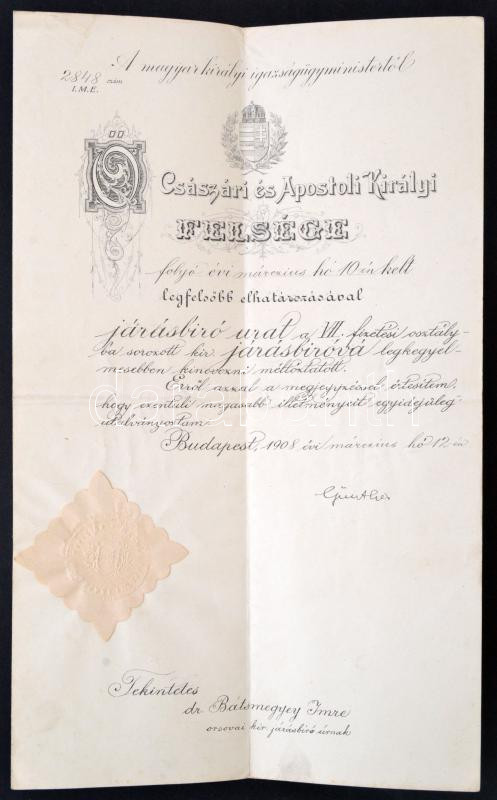 A magyar királyi igazságügyministertől
2848 szám
I.M.E.
Ő Császári és Apostoli Királyi
FELSÉGE
folyó évi márczius hó 10-én kelt
legfelsőbb elhatározásával
járásbíró urat a VII. fizetési osztály-
ba sorozott kir. járásbiróvá legkegyel-
mesebben kinevezni méltóztatott.
Erről azzal a megjegyzéssel értesitem,
hogy ezentúli magasabb illetményeit egyidejüleg
utalványoztam.
Budapest, 1908 évi márczius hó 12-én
Günther
Tekintetes
dr. Bátsmegyey Imre
orsovai kir. járásbiró úrnak
darabanth.com